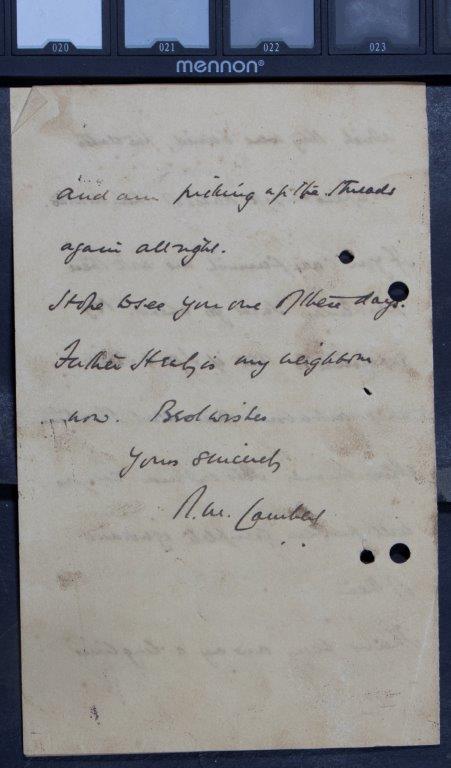 020 021 022 023
mennon®
and am picking up the threads
again allright.
Hope to see you one of these days.
Father is my neighbour
now. Best wishes
Yours sincerely